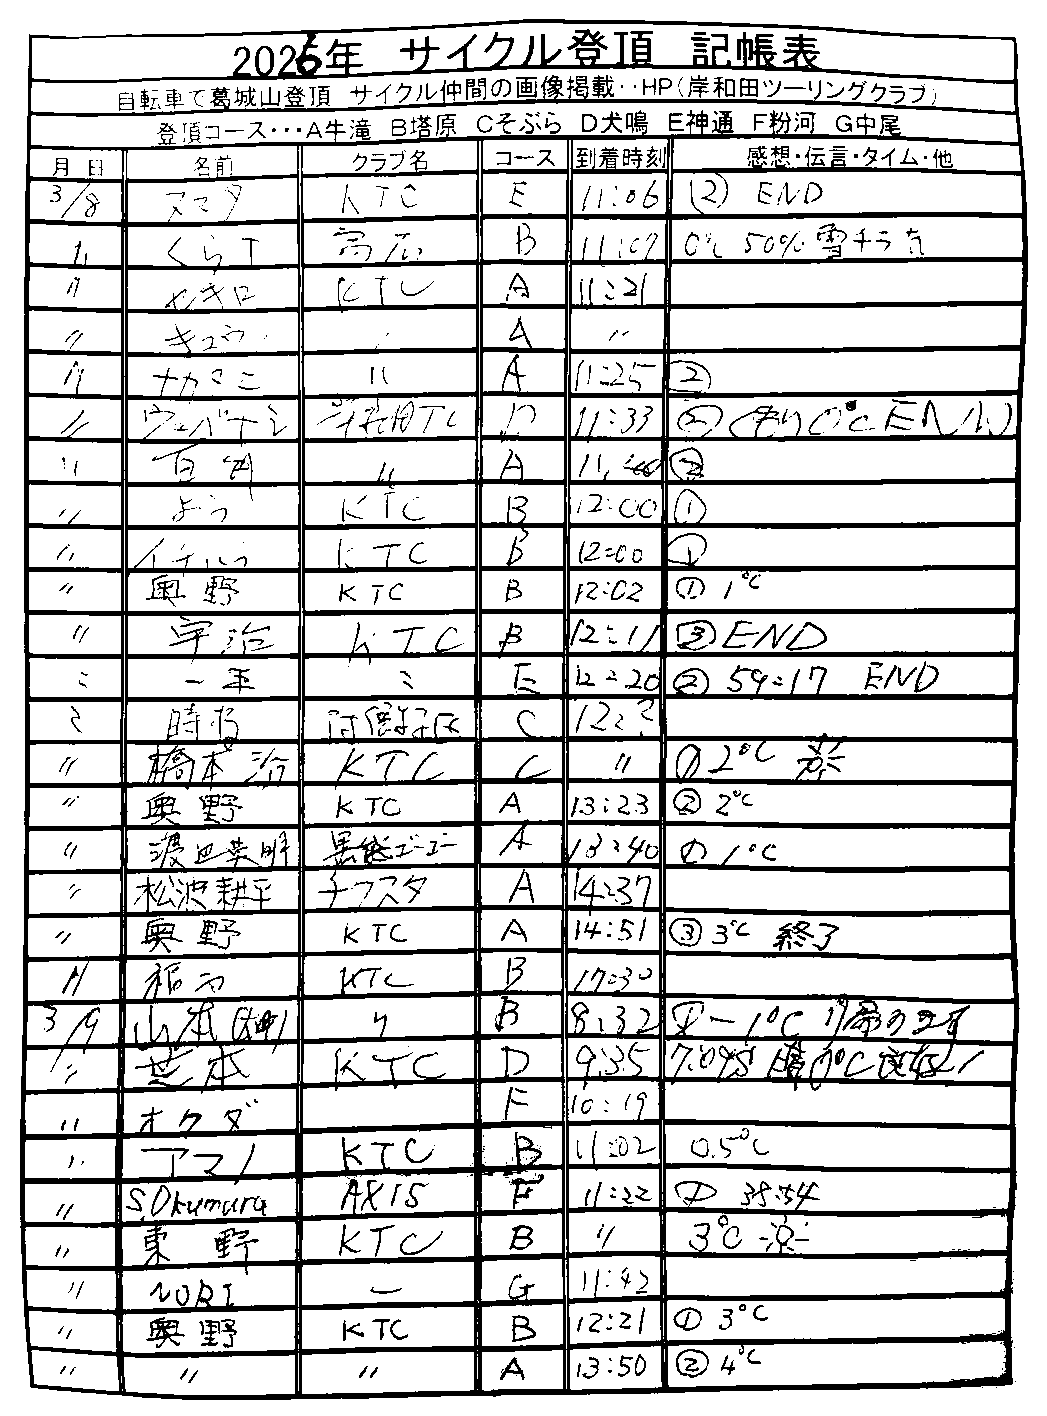 2026年 サイクル登頂 記帳表
自転車で葛城山登頂 サイクル仲間の画像掲載‥HP(岸和田ツーリングクラブ)
登頂コース･･･A牛滝 B塔原 Cそぶら D犬鳴 E神通 F粉河 G中尾
月 日 名前 クラブ名 コース 到着時刻 感想・伝言・タイム・他
3/8 ヌマタ KTC E 11:06 ② END
〃 くらT B 11:07 0℃ 50% 雪チラ
〃 セキロ KTC A 11:21
〃 キュウ A 〃
〃 ナカマミ 〃 A 11:25 ②
〃 TC D 11:33 ② くもり 0℃ END
〃 〃 A ②
〃 よう KTC B 12:00 ①
〃 イチハラ KTC B 12:00 ①
〃 奥野 KTC B 12:02 ① 1℃
〃 宇治 KTC B 12:11 ③ END
〃 一平 〃 E 12:20 ② 59:17 END
〃 C 12:?
〃 橋本 治 KTC C 〃 ① 2℃
〃 奥野 KTC A 13:23 ② 2℃
〃 渡辺英明 A 13:40 ① 1℃
〃 松波耕平 チフスタ A 14:37
〃 奥野 KTC A 14:51 ③ 3℃ 終了
〃 KTC B 17:30
3/9 山本 〃 B 8:32 ① -1℃ 帰ります
〃 芝本 KTC D 9:35 晴 0℃
〃 オクダ F 10:19
〃 アマノ KTC B 11:02 0.5℃
〃 S.Okumura AX15 F 11:22 ① 38:54
〃 東 野 KTC B 〃 3℃
〃 NORI ー G 11:42
〃 奥野 KTC B 12:21 ① 3℃
〃 〃 〃 A 13:50 ② 4℃